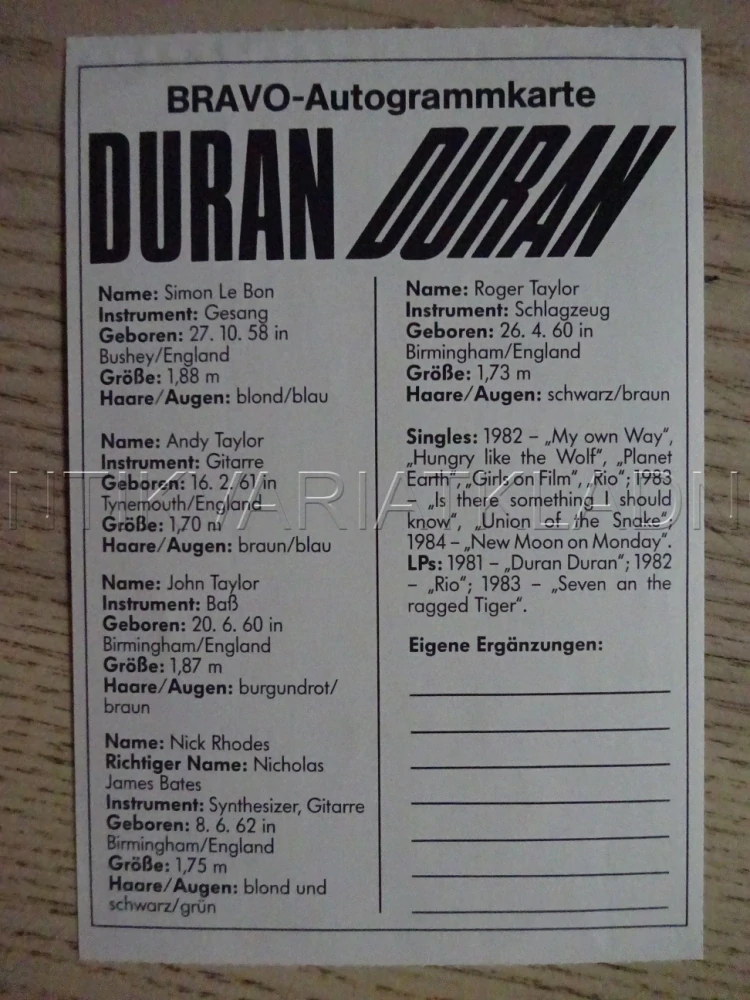 BRAVO-Autogrammkarte
DURAN DURAN
Name: Simon Le Bon
Instrument: Gesang
Geboren: 27. 10. 58 in
Bushey/England
Größe: 1,88 m
Haare/Augen: blond/blau
Name: Andy Taylor
Instrument: Gitarre
Geboren: 16. 2. 61 in
Tynemouth/England
Größe: 1,70 m
Haare/Augen: braun/blau
Name: John Taylor
Instrument: Baß
Geboren: 20. 6. 60 in
Birmingham/England
Größe: 1,87 m
Haare/Augen: burgundrot/
braun
Name: Nick Rhodes
Richtiger Name: Nicholas
James Bates
Instrument: Synthesizer, Gitarre
Geboren: 8. 6. 62 in
Birmingham/England
Größe: 1,75 m
Haare/Augen: blond und
schwarz/grün
Name: Roger Taylor
Instrument: Schlagzeug
Geboren: 26. 4. 60 in
Birmingham/England
Größe: 1,73 m
Haare/Augen: schwarz/braun
Singles: 1982 – „My own Way“,
„Hungry like the Wolf“, „Planet
Earth“, „Girls on Film“, „Rio“; 1983
– „Is there something I should
know“, „Union of the Snake“,
1984 – „New Moon on Monday“.
LPs: 1981 – „Duran Duran“; 1982
– „Rio“; 1983 – „Seven an the
ragged Tiger“.
Eigene Ergänzungen:
NTIKVARIATKLADN